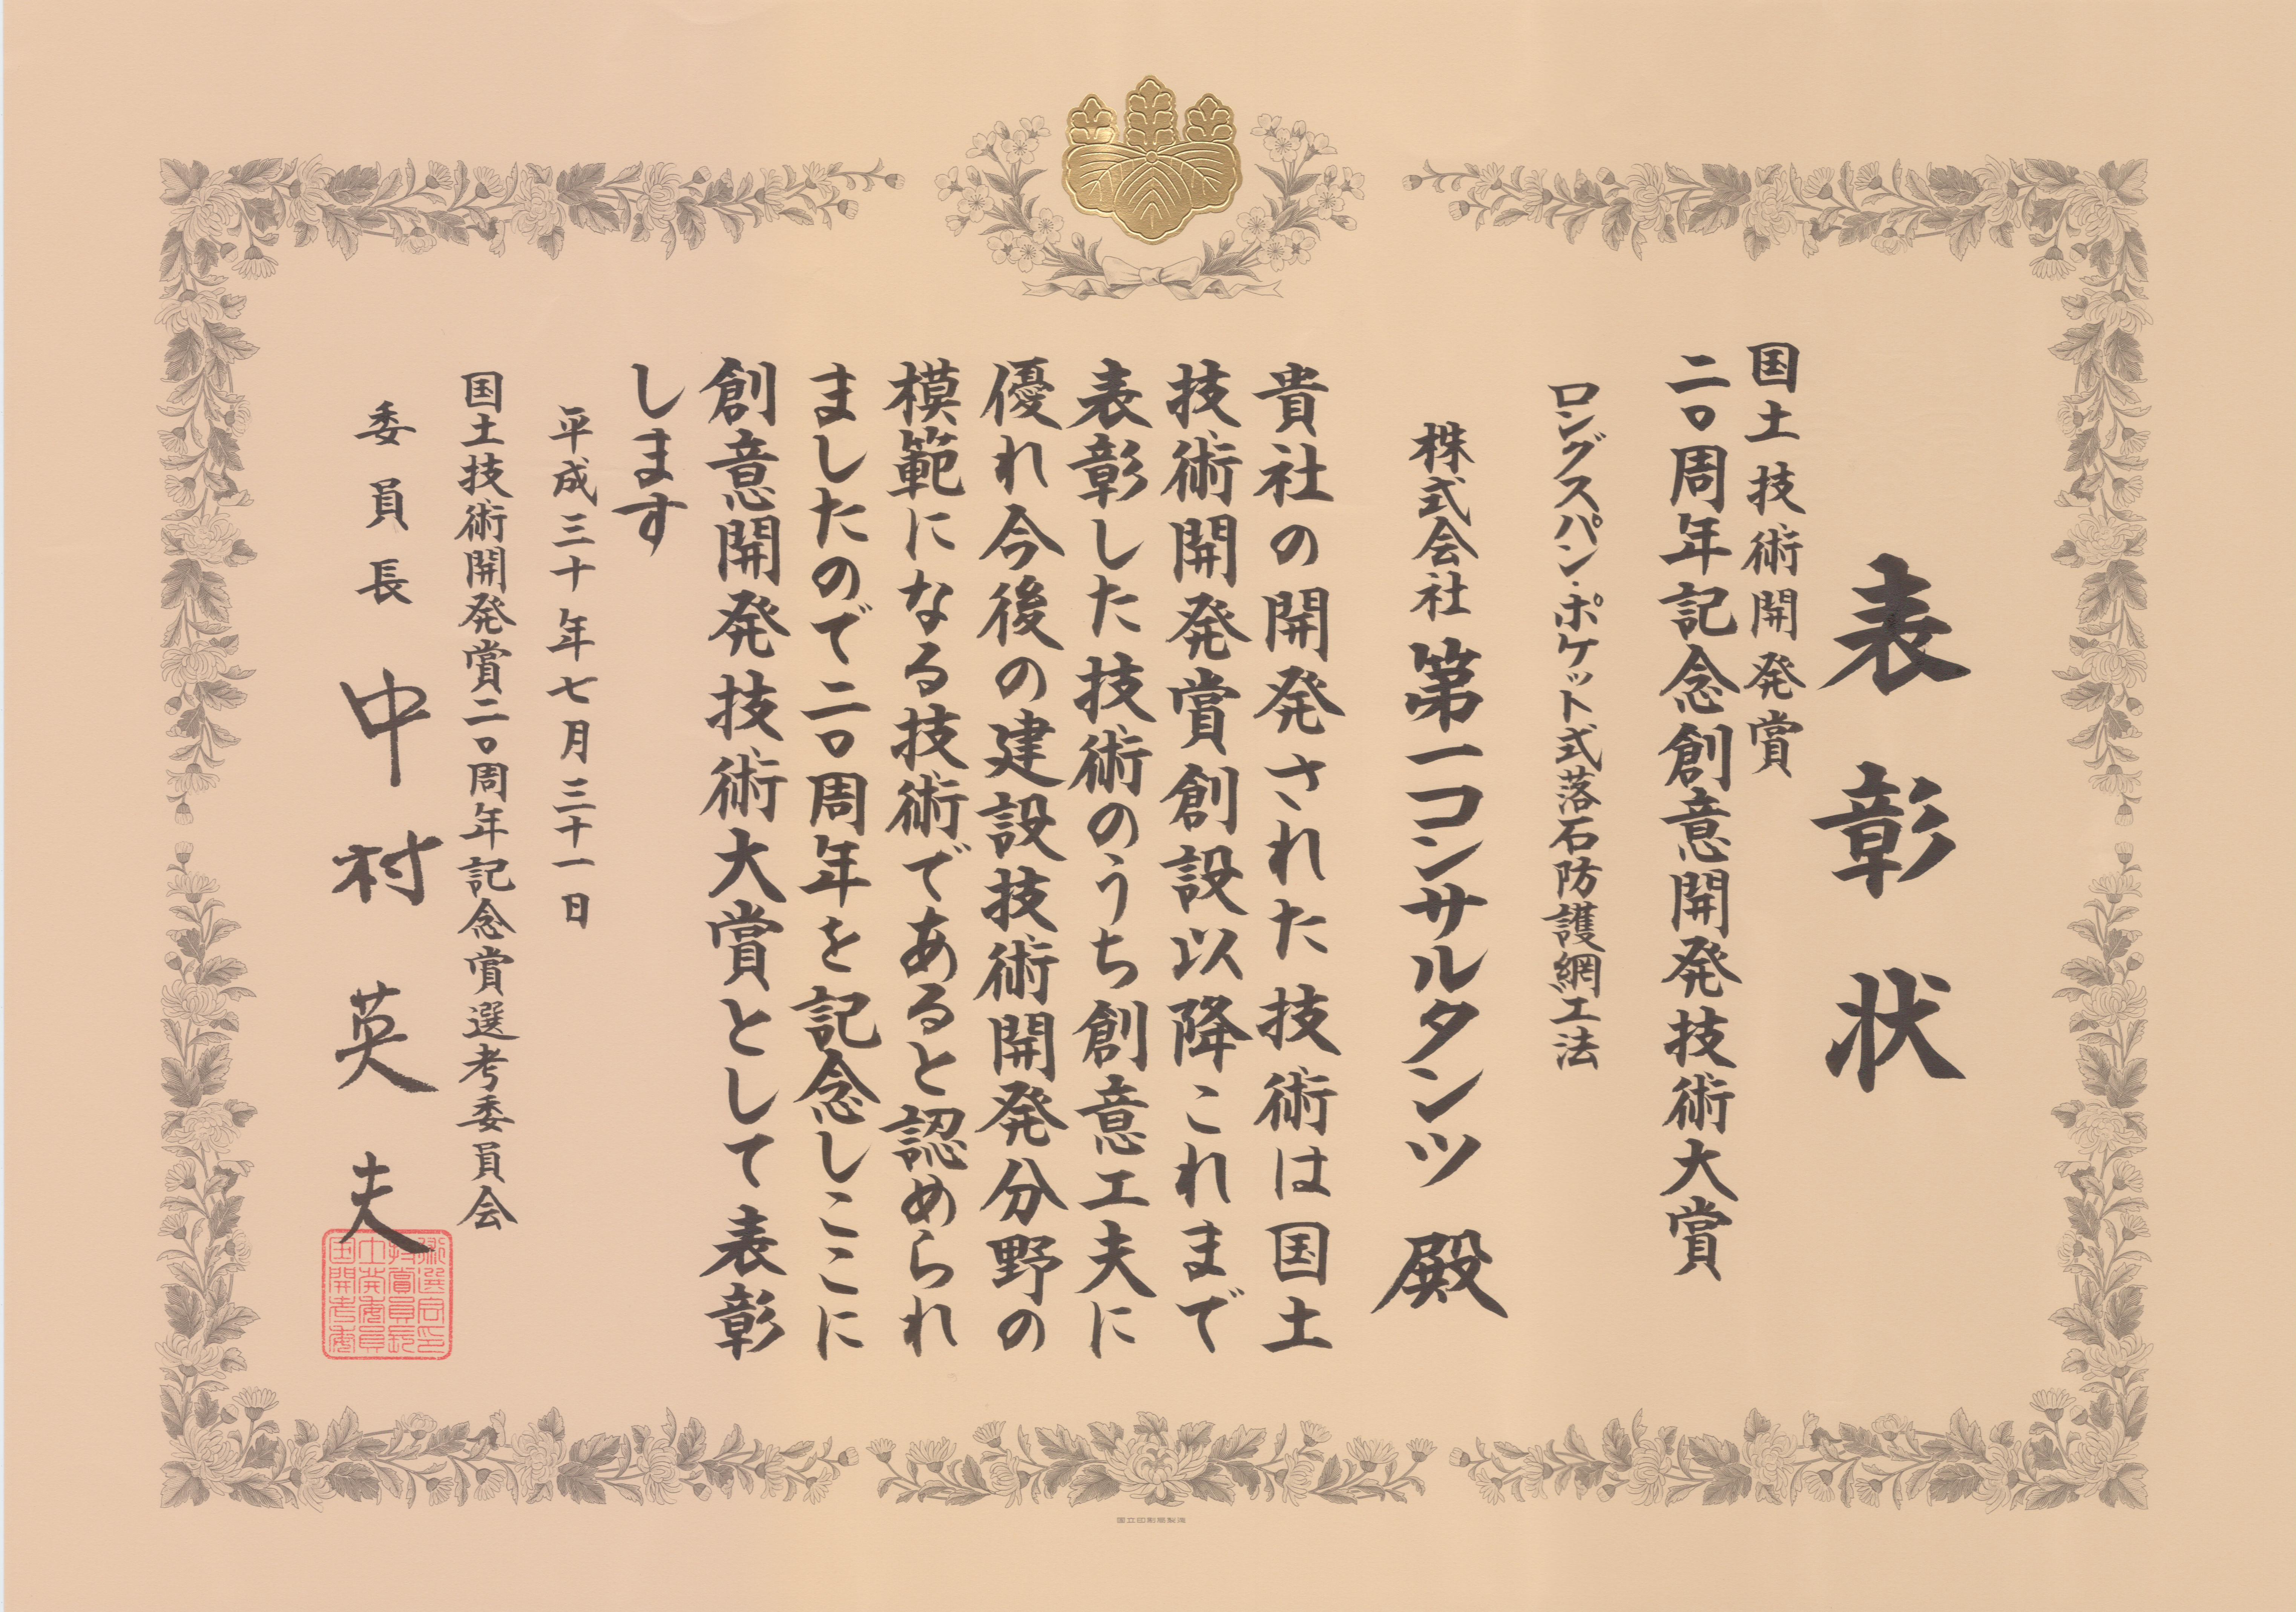 表彰状
国土技術開発賞
二〇周年記念創意開発技術大賞
ロングスパン・ポケット式落石防護網工法
株式会社 第一コンサルタンツ 殿
貴社の開発された技術は国土
技術開発賞創設以降これまで
表彰した技術のうち創意工夫に
優れ今後の建設技術開発分野の
模範になる技術であると認められ
ましたので二〇周年を記念しここに
創意開発技術大賞として表彰
します
平成三十年七月三十一日
国土技術開発賞二〇周年記念賞選考委員会
委員長 中村英夫
国立印刷局製造